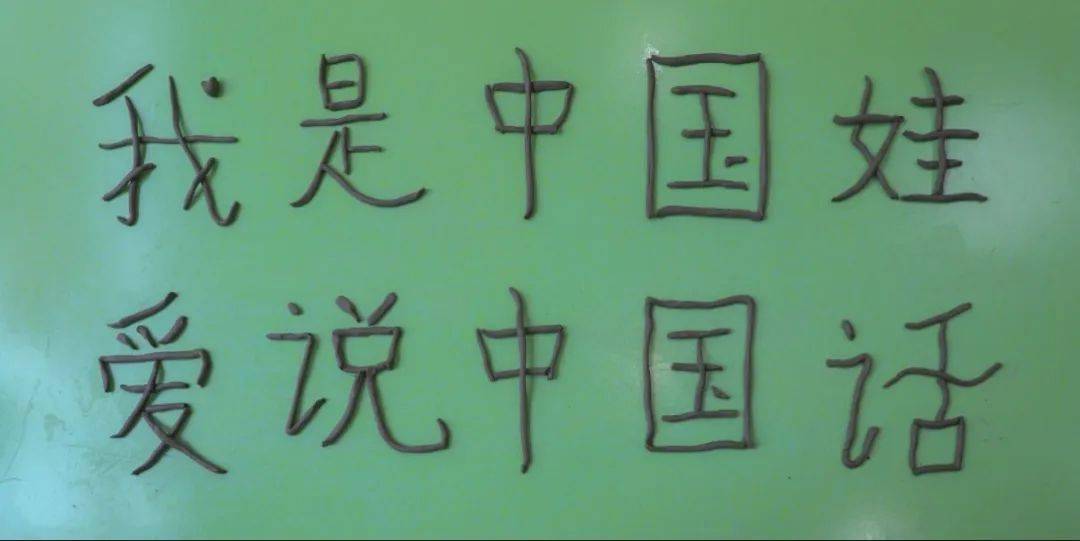 我是中国娃
爱说中国话